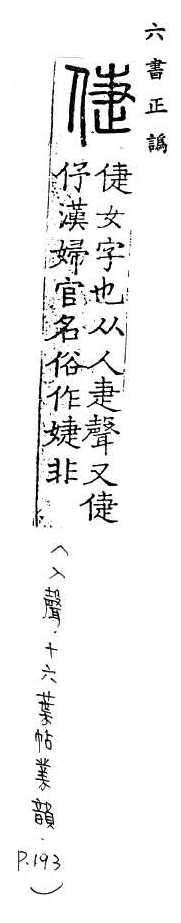 六書正譌
倢
倢女字也从人疌聲又倢
伃漢婦官名俗作婕非
（入聲．十六葉帖業韻．P.193）